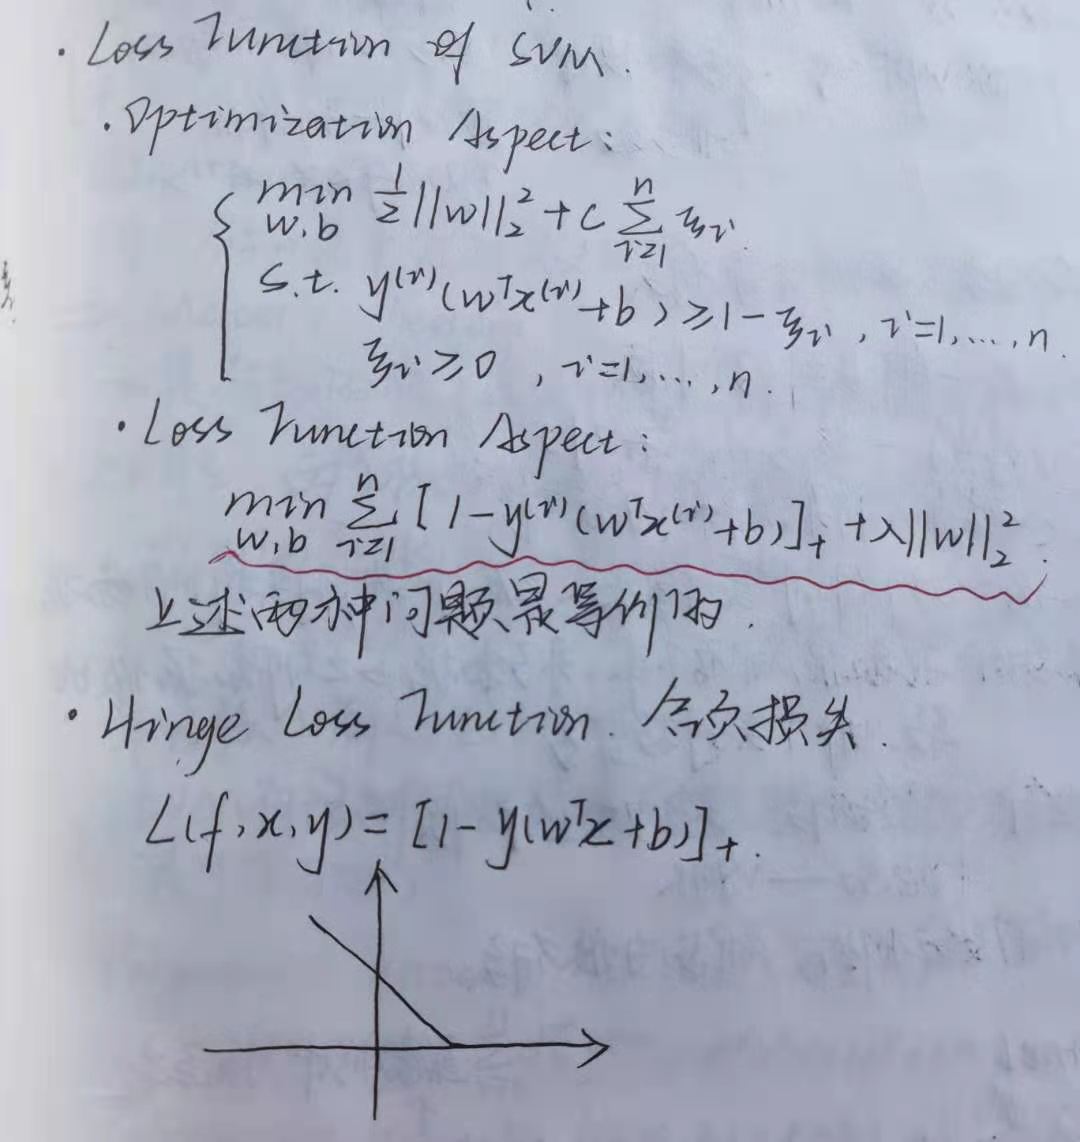 · Loss Function of SVM.
· Optimization Aspect:
min w,b 1/2 ||w||₂² + C Σᵢ₌₁ⁿ ξᵢ
s.t. y⁽ⁱ⁾(wᵀx⁽ⁱ⁾+b) ≥ 1-ξᵢ, i=1,...,n.
ξᵢ ≥ 0, i=1,...,n.
· Loss Function Aspect:
min w,b Σᵢ₌₁ⁿ [1-y⁽ⁱ⁾(wᵀx⁽ⁱ⁾+b)]₊ + λ||w||₂².
上述两种问题是等价的.
· Hinge Loss Function. 合页损失.
L(f,x,y) = [1-y(wᵀx+b)]₊.